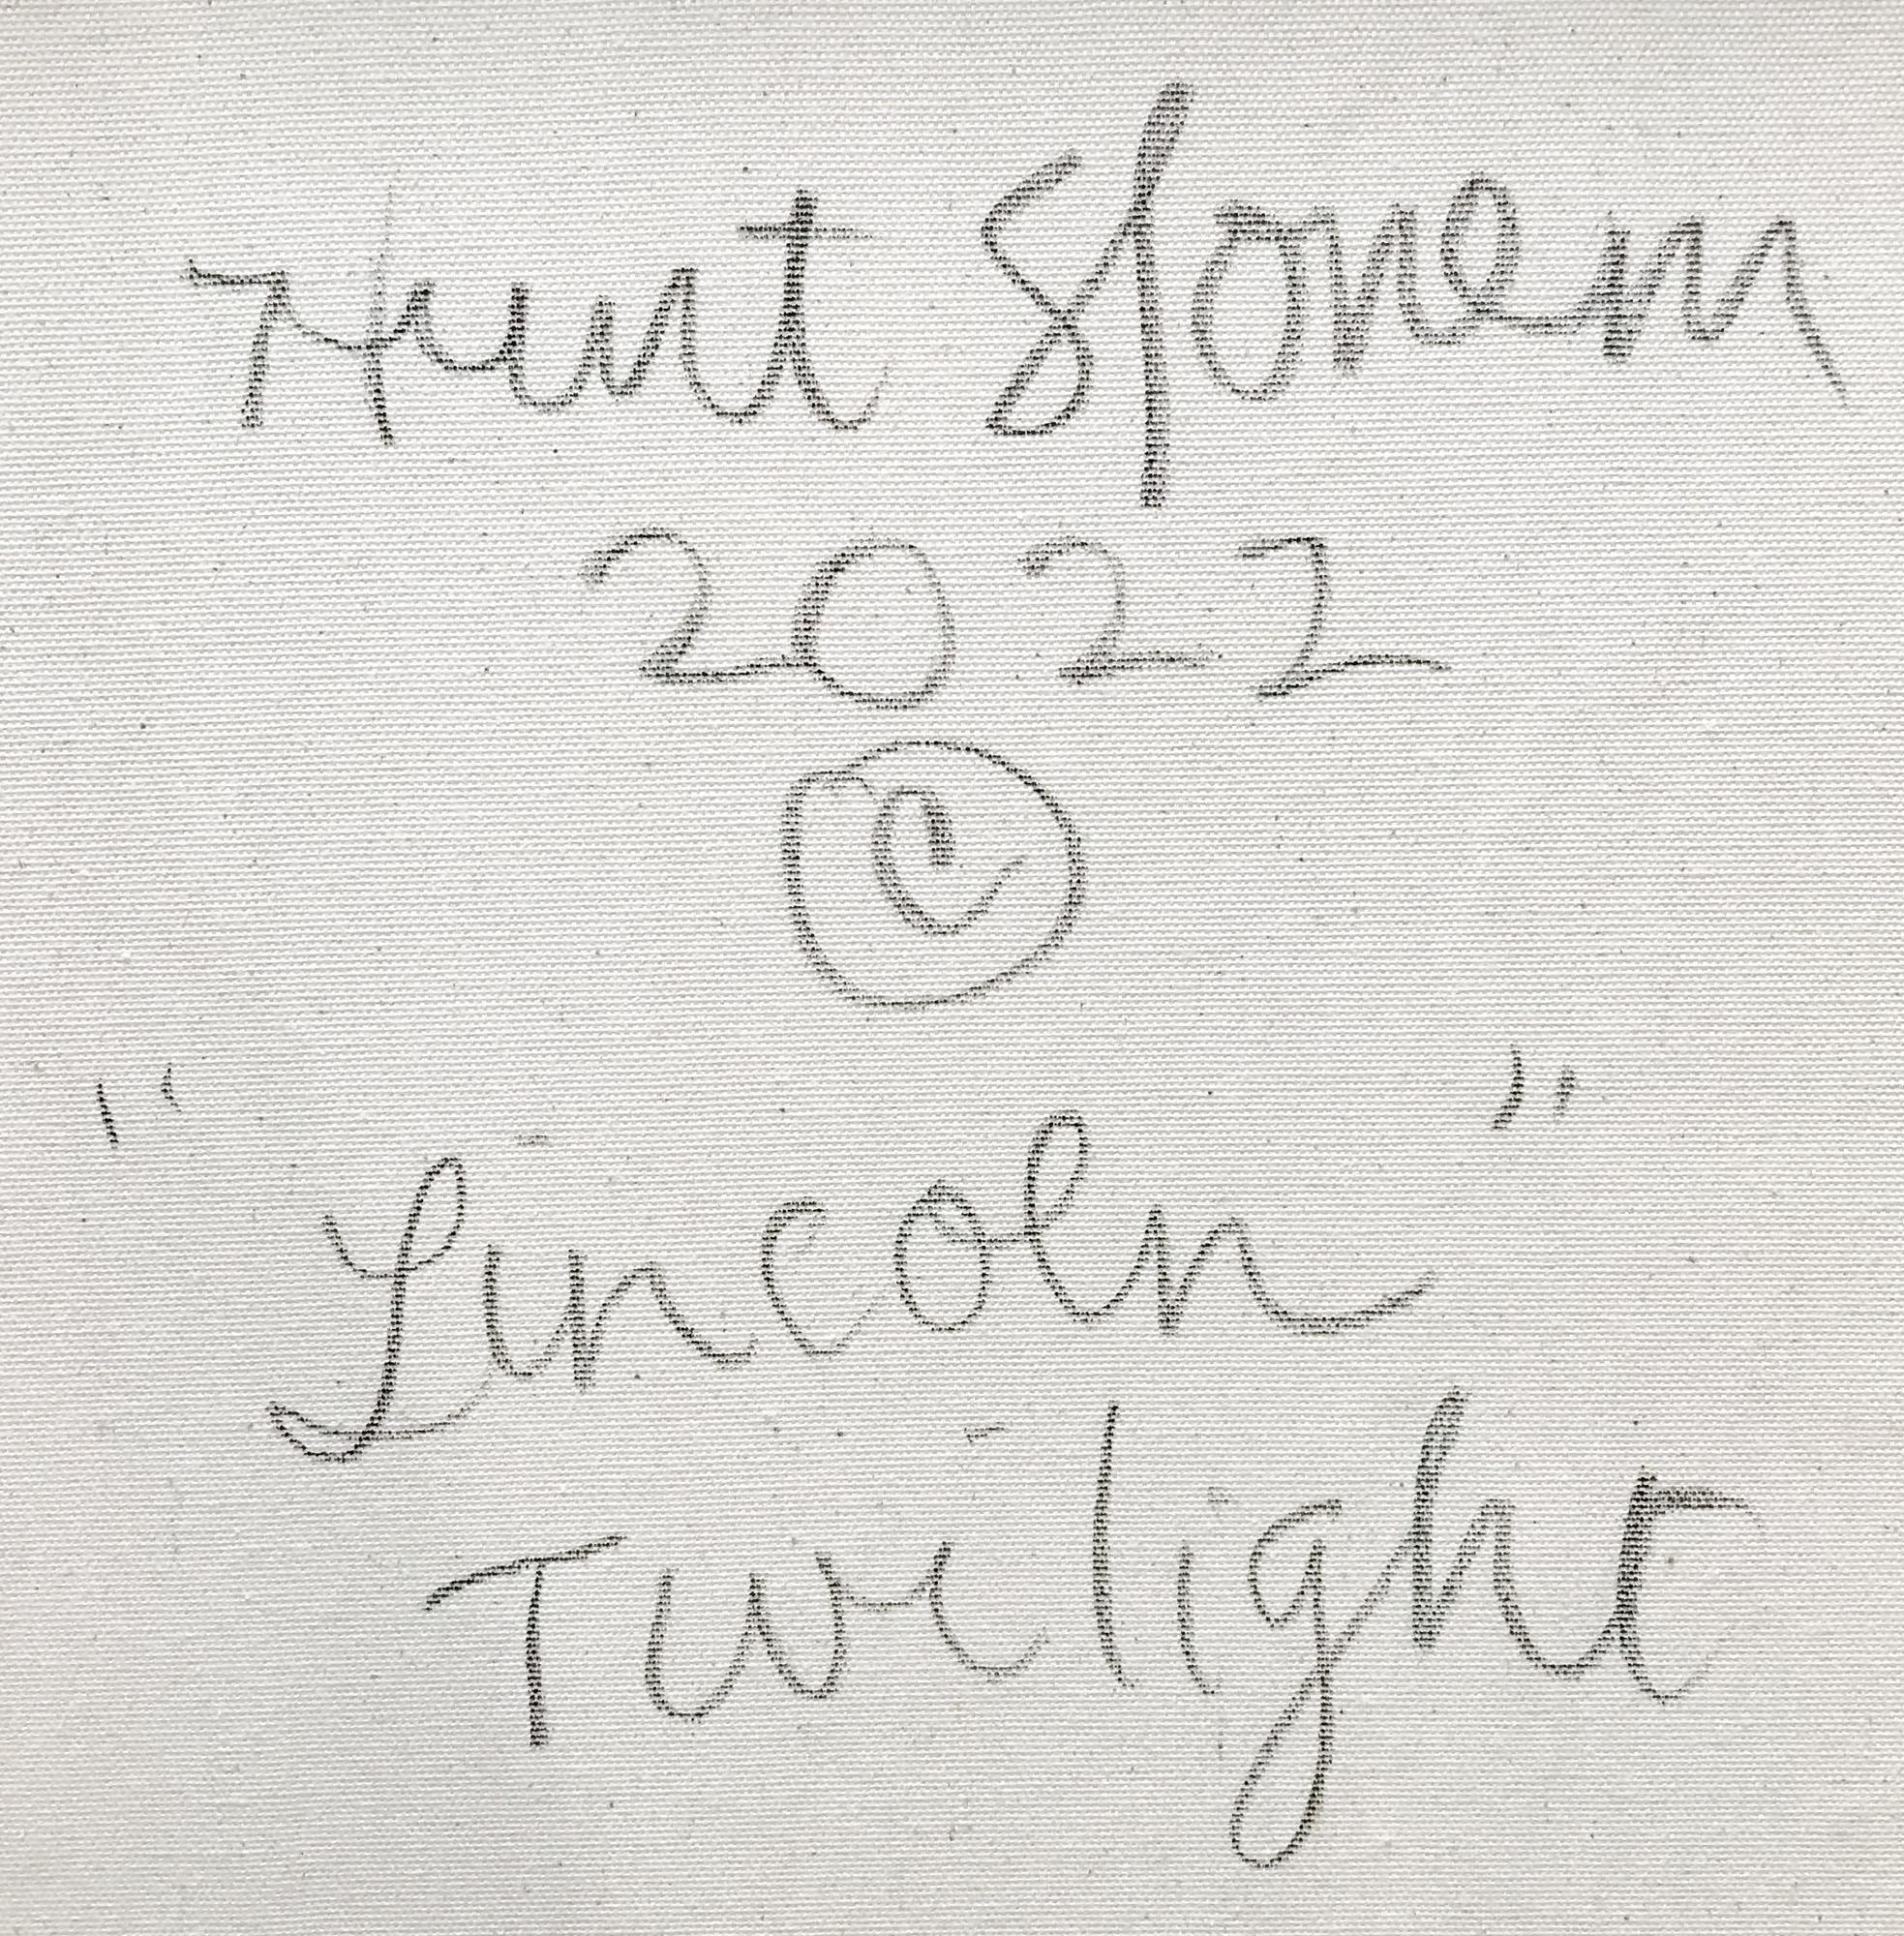 Hunt Slonem
2022
©
" Lincoln "
Twilight